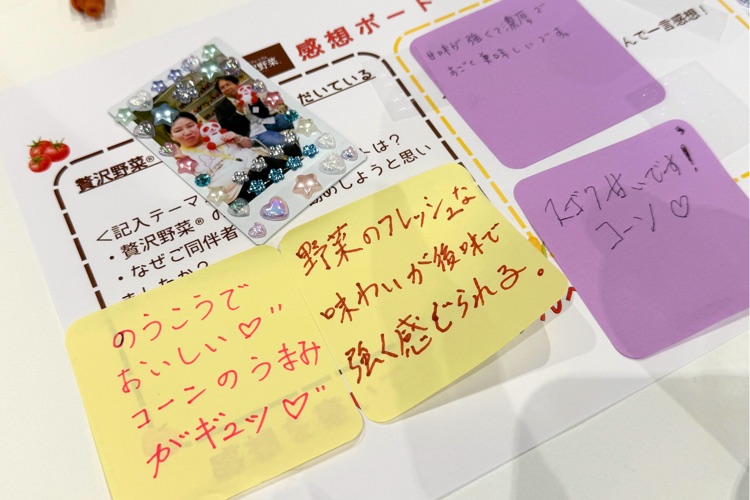 感想ボード
野菜®
贅沢野菜®
だいている
<記入テーマ
・贅沢野菜®の
トは?
・なぜご同伴者
勧めしようと思い
ましたか?
んで一言感想!
甘味が強くて濃厚で
すごく美味しいです
スゴク甘いです!
コーン♡
野菜のフレッシュな
味わいが後味で
強く感じられる。
のうこうで
おいしい♡"
コーンのうまみ
がギュッ♡"